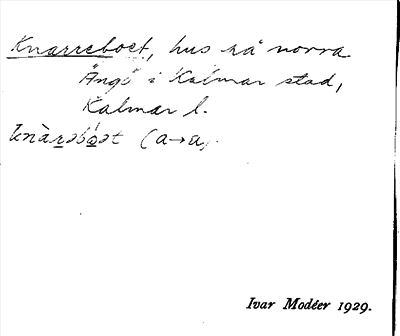 Knarreboet, hus på norra
Ängö i Kalmar stad,
Kalmar l.
knàrəbóət (a→a,
Ivar Modéer 1929.